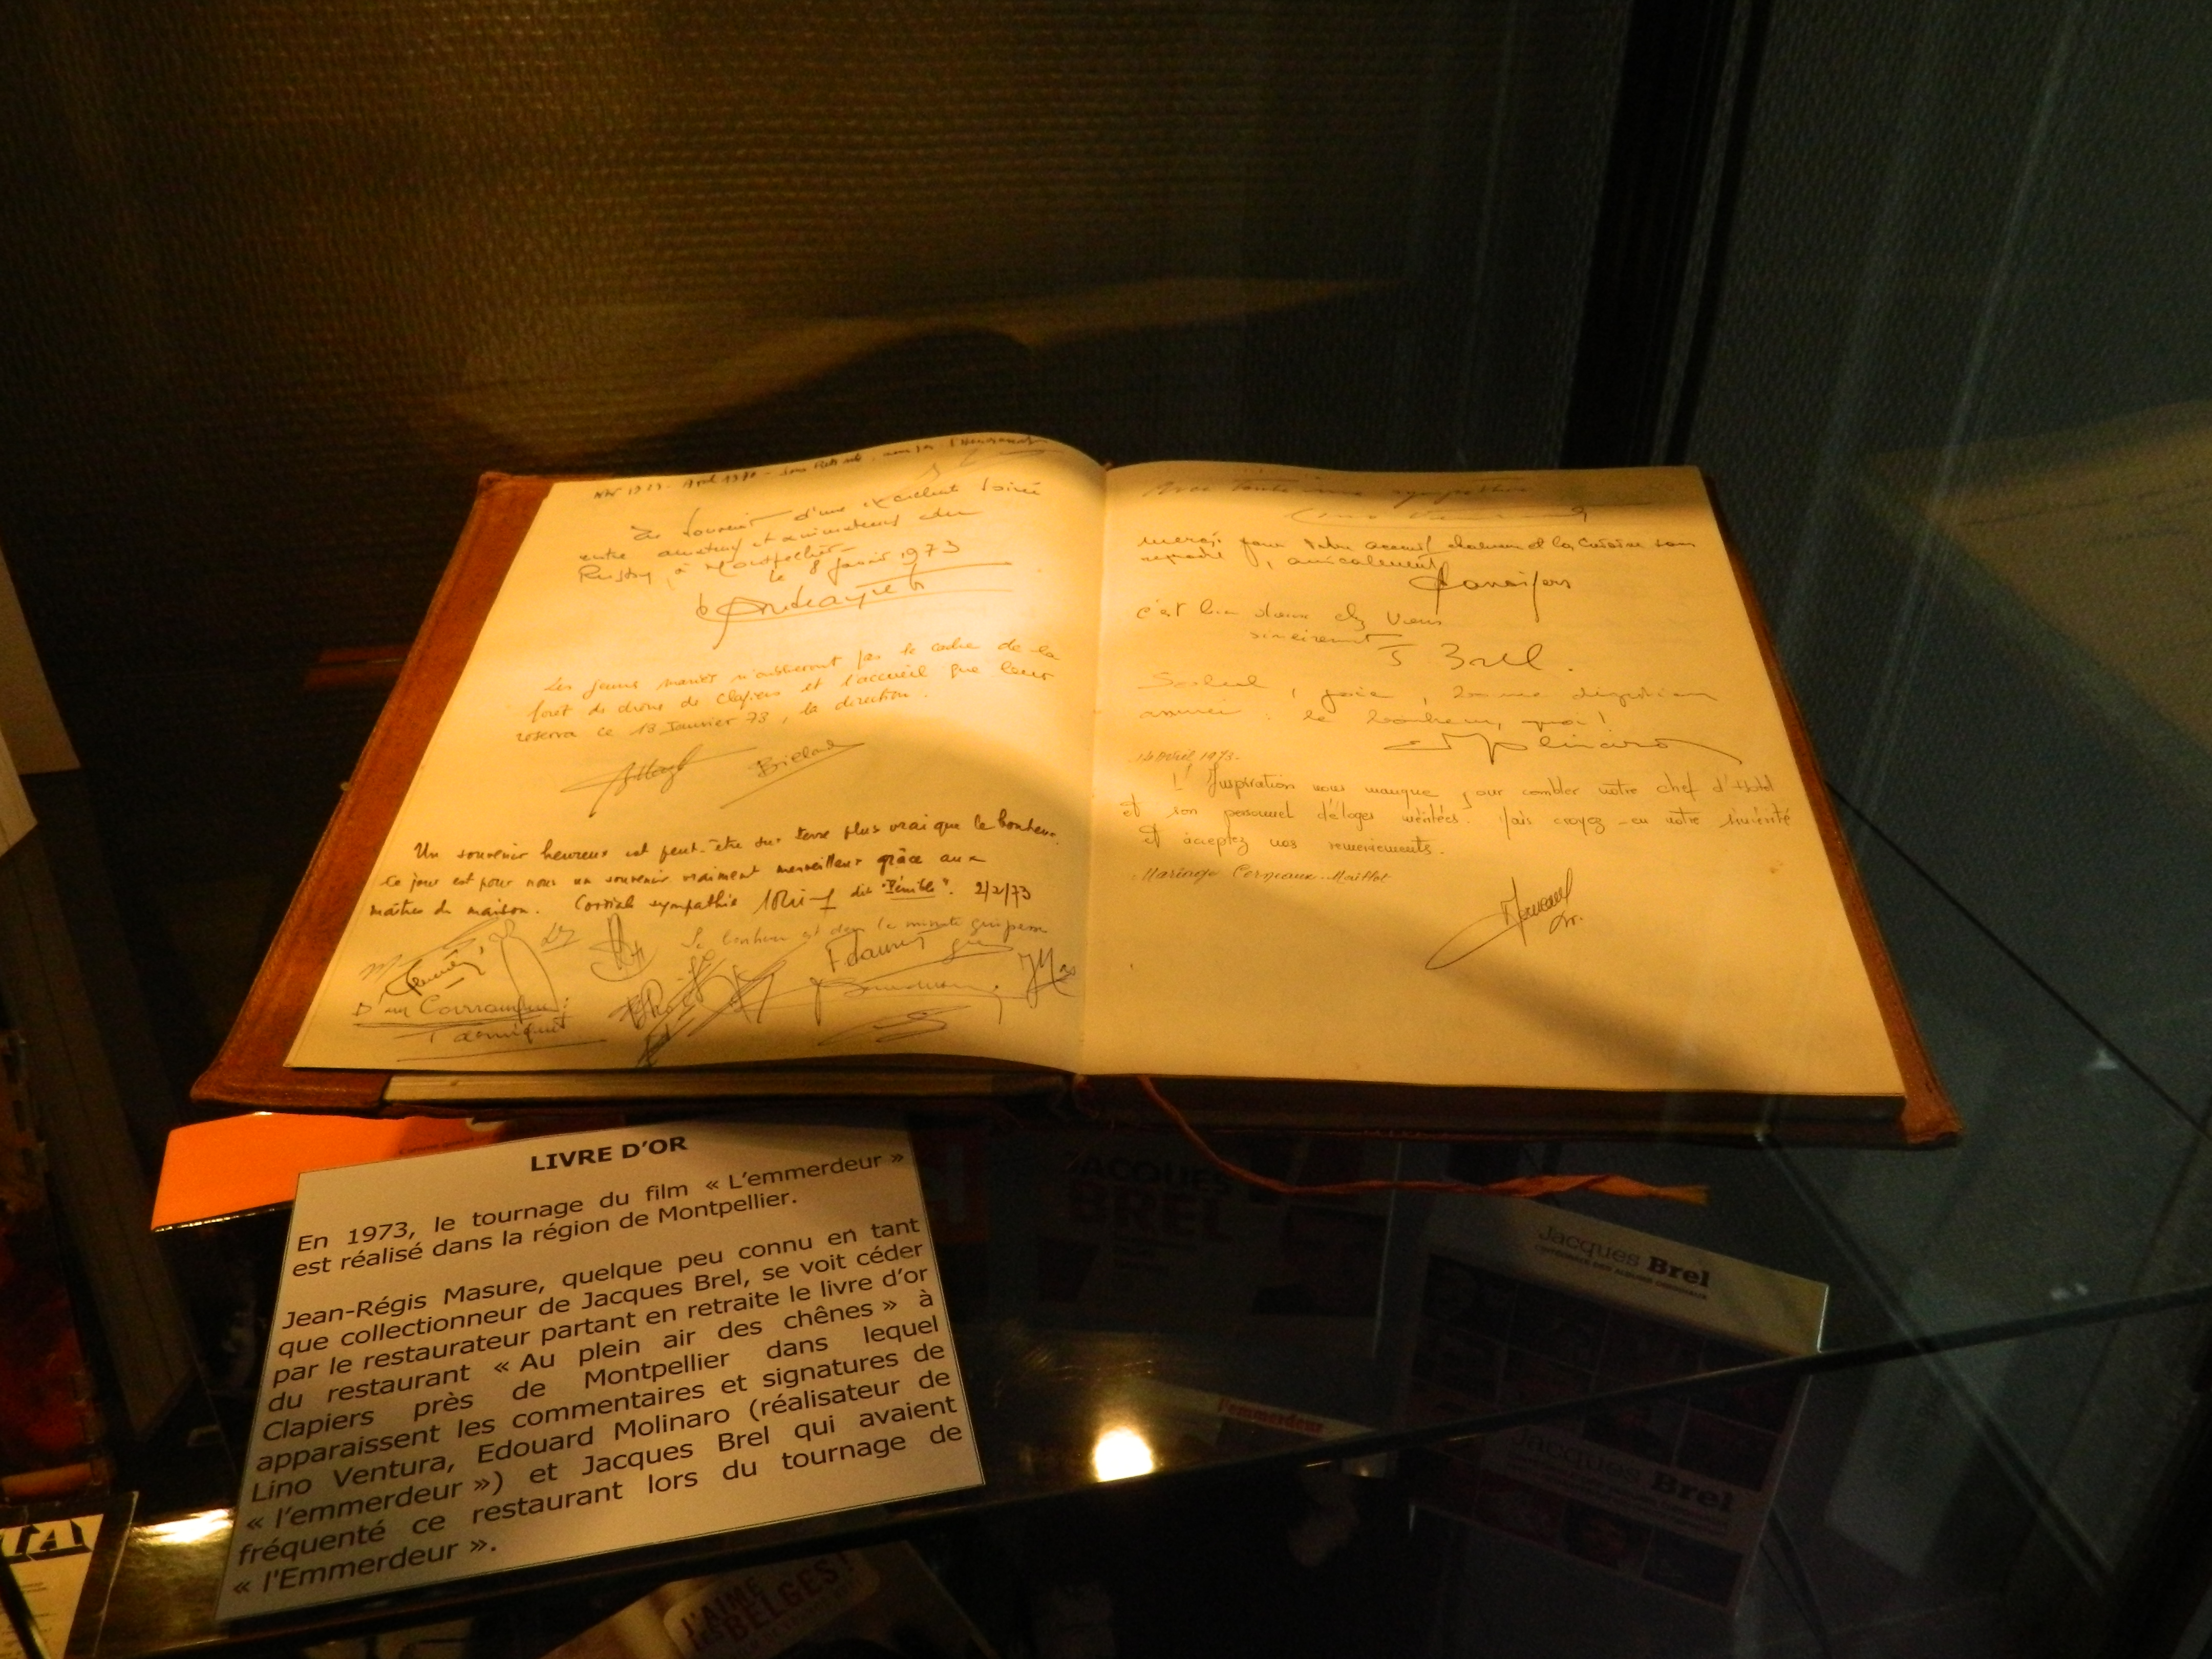 En souvenir d'une excellente soirée
entre amateurs et animateurs du
Rugby à Montpellier
le 8 janvier 1973
Les jeunes mariés n'oublieront pas le cadre de la
forêt de chêne de Clapiers et l'accueil que leur
réserva ce 13 Janvier 73, la direction.
Un souvenir heureux est peut-être sur terre plus vrai que le bonheur.
Ce jour est pour nous un souvenir vraiment merveilleux grâce aux
maîtres de maison. Cordiale sympathie dit "Pénible". 2/2/73
Le bonheur est dans la minute qui passe
Avec toute ma sympathie
Lino Ventura
Merci pour votre accueil chaleureux et la cuisine sans
reproche, amicalement
c'est bien doux chez vous
sincèrement
J Brel.
Soleil, joie, bonne digestion
assurée : le bonheur, quoi!
E Molinaro
16 Avril 1973.
L'Inspiration nous manque pour combler notre chef d'Hotel
et son personnel d'éloges mérités. Mais croyez-en notre sincérité
et acceptez nos remerciements.
Mariage Corneaux-Maillot
LIVRE D'OR
En 1973, le tournage du film « L'emmerdeur »
est réalisé dans la région de Montpellier.
Jean-Régis Masure, quelque peu connu en tant
que collectionneur de Jacques Brel, se voit céder
par le restaurateur partant en retraite le livre d'or
du restaurant « Au plein air des chênes » à
Clapiers près de Montpellier dans lequel
apparaissent les commentaires et signatures de
Lino Ventura, Edouard Molinaro (réalisateur de
« l'emmerdeur ») et Jacques Brel qui avaient
fréquenté ce restaurant lors du tournage de
« l'Emmerdeur ».
JACQUES
BREL
Jacques Brel
l'emmerdeur
Jacques Brel
J'AIME
LES BELGES!